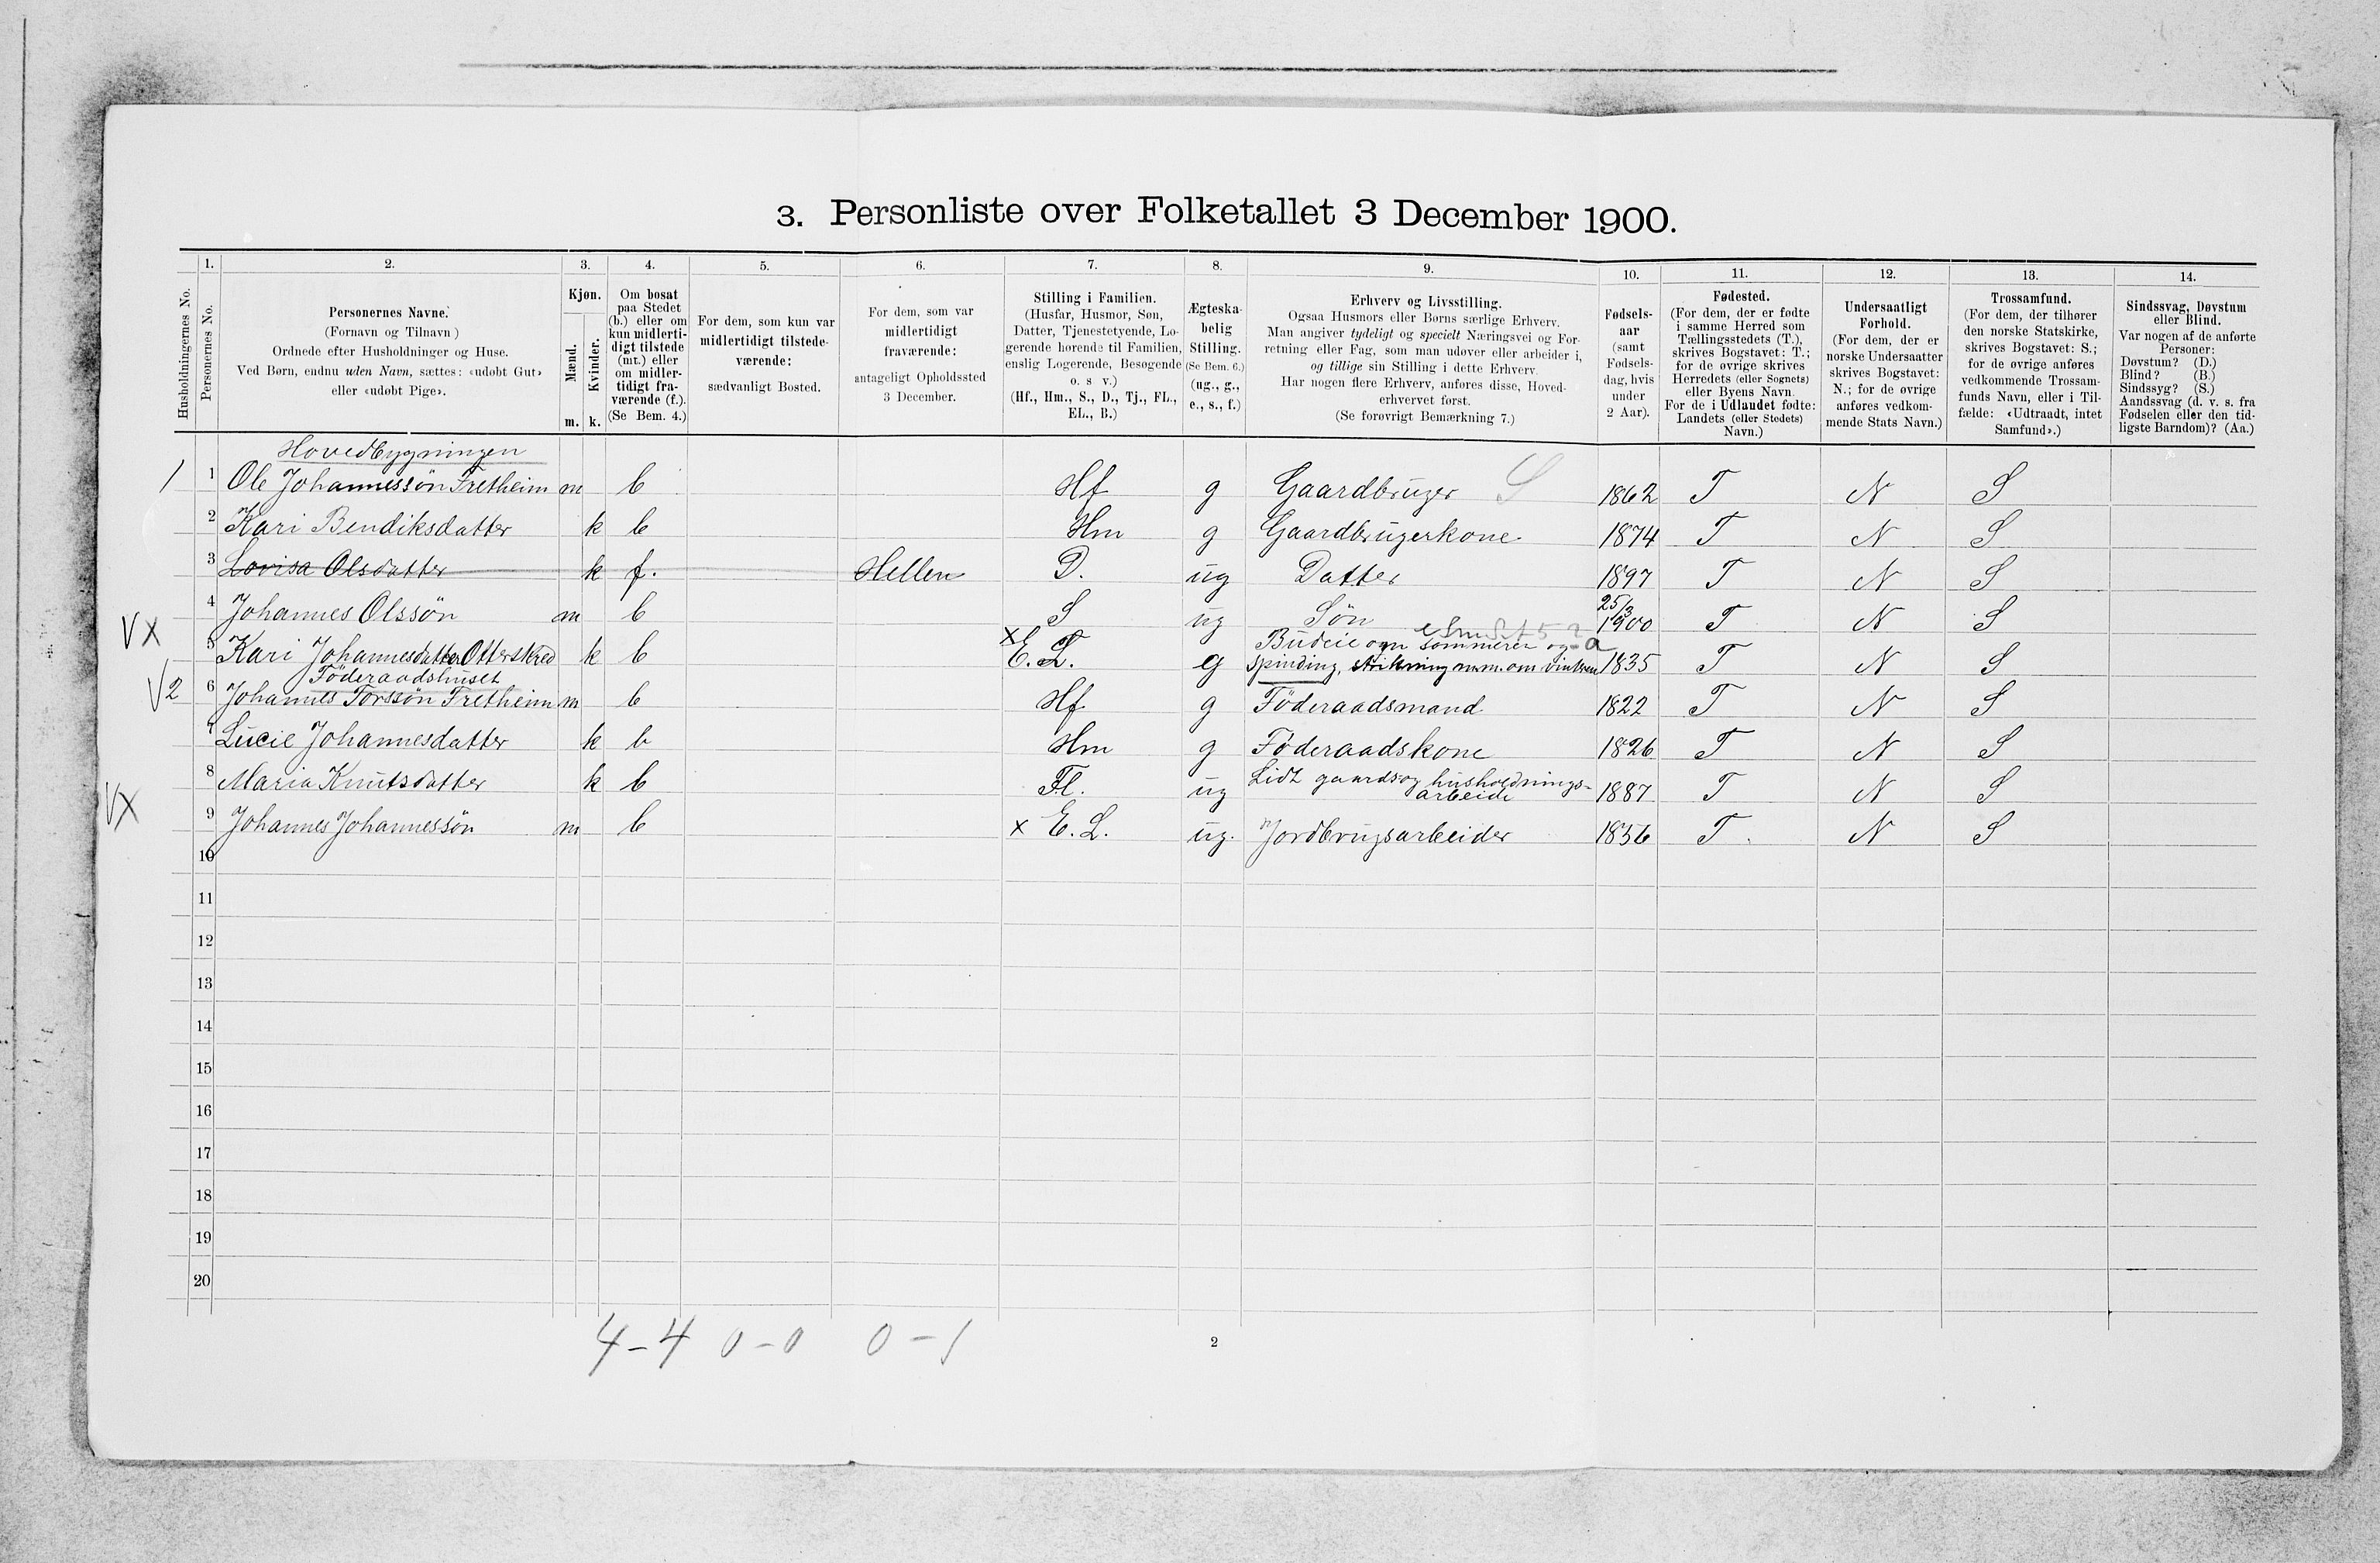 3. Personliste over Folketallet 3 December 1900.
1. 2. 3. 4. 5. 6. 7. 8. 9. 10. 11. 12. 13. 14.
Husholdningernes No.
Personernes No.
Personernes Navne.
(Fornavn og Tilnavn)
Ordnede efter Husholdninger og Huse.
Ved Børn, endnu uden Navn, sættes: «udøbt Gut»
eller «udøbt Pige».
Kjøn.
Mænd.
Kvinder.
m. k.
Om bosat
paa Stedet
(b.) eller om
kun midlerti-
digt tilstede
(mt.) eller
om midler-
tidigt fra-
værende (f.).
(Se Bem. 4.)
For dem, som kun var
midlertidigt tilstede-
værende:
sædvanligt Bosted.
For dem, som var
midlertidigt
fraværende:
antageligt Opholdssted
3 December.
Stilling i Familien.
(Husfar, Husmor, Søn,
Datter, Tjenestetyende, Lo-
gerende hørende til Familien,
enslig Logerende, Besøgende
o. s v.)
(Hf., Hm., S., D., Tj., FL.,
EL., B.)
Ægteska-
belig
Stilling.
(Se Bem. 6.)
(ug., g.,
e., s., f.)
Erhverv og Livsstilling.
Ogsaa Husmors eller Børns særlige Erhverv.
Man angiver tydeligt og specielt Næringsvei og For-
retning eller Fag, som man udøver eller arbeider i,
og tillige sin Stilling i dette Erhverv.
Har nogen flere Erhverv, anføres disse, Hoved-
erhvervet først.
(Se forøvrigt Bemærkning 7.)
Fødsels-
aar
(samt
Fødsels-
dag, hvis
under
2 Aar).
Fødested.
(For dem, der er fødte
i samme Herred som
Tællingsstedets (T.),
skrives Bogstavet: T.;
for de øvrige skrives
Herredets (eller Sognets)
eller Byens Navn.
For de i Udlandet fødte:
Landets (eller Stedets)
Navn.)
Undersaatligt
Forhold.
(For dem, der er
norske Undersaatter
skrives Bogstavet:
N.; for de øvrige
anføres vedkom-
mende Stats Navn.)
Trossamfund.
(For dem, der tilhører
den norske Statskirke,
skrives Bogstavet: S.;
for de øvrige anføres
vedkommende Trossam-
funds Navn, eller i Til-
fælde: «Udtraadt, intet
Samfund».)
Sindssvag, Døvstum
eller Blind.
Var nogen af de anførte
Personer:
Døvstum? (D.)
Blind? (B.)
Sindssyg? (S.)
Aandssvag (d. v. s. fra
Fødselen eller den tid-
ligste Barndom)? (Aa.)
Hovedbygningen
1 1 Ole Johannessön Fretheim m b Hf g Gaardbruger S 1862 T N S
2 Kari Bendiksdatter k b Hm g Gaardbrugerkone 1874 T N S
3 Lovisa Olsdatter k f. Hellen D. ug Datter 1897 T N S
4 Johannes Olssön m b S ug Sön 25/3 1900 T N S
Vx 5 Kari Johannesdatter Otterskred k b x E. L. g Budeie om sommeren og a
spinding, strikning m.m. om vinteren 1835 T N S
Föderaadshuset
V2 6 Johannes Torssön Fretheim m b Hf g Föderaadsmand 1822 T N S
7 Lucie Johannesdatter k b Hm g Föderaadskone 1826 T N S
8 Maria Knutsdatter k b Fl. ug Lidt gaards og husholdnings-
arbeide 1887 T N S
Vx 9 Johannes Johannessön m b x E. L. ug. Jordbrugsarbeider 1856 T. N S
10
11
12
13
14
15
16
17
18
19
20
4-4 0-0 0-1
2